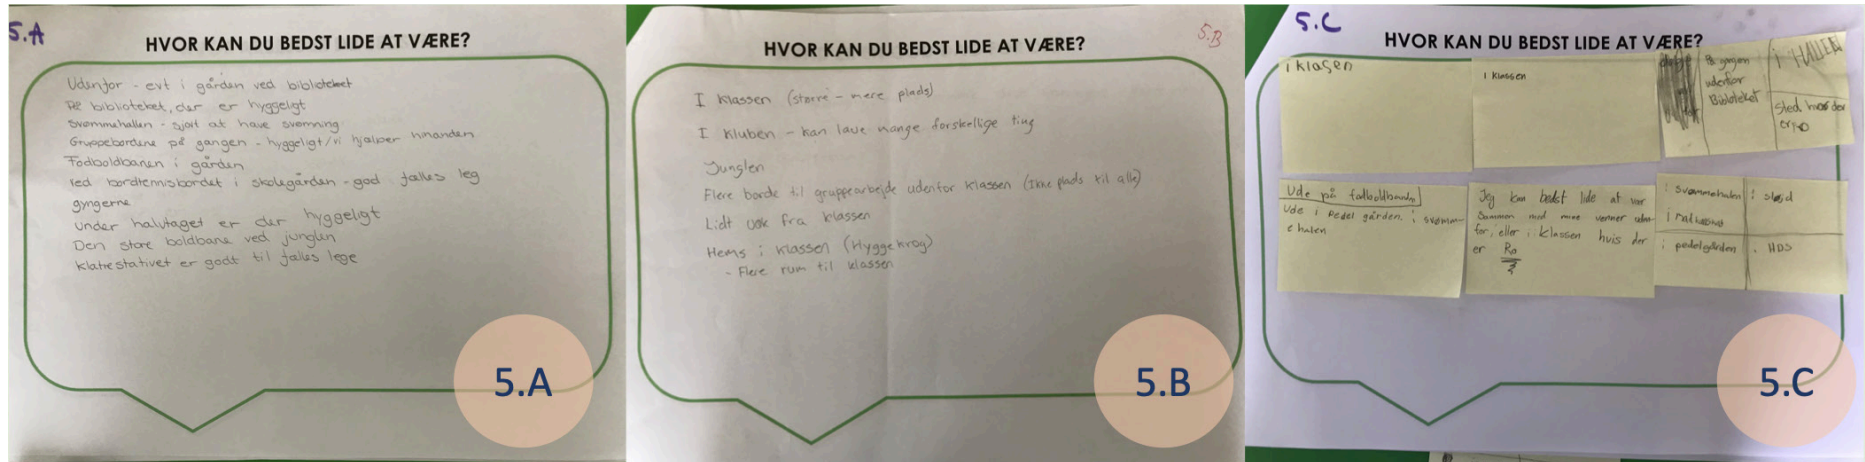 5.A
HVOR KAN DU BEDST LIDE AT VÆRE?
Udenfor - evt i gården ved biblioteket
På biblioteket, der er hyggeligt
Svømmehallen - sjovt at have svømning
Gruppebordene på gangen - hyggeligt/vi hjælper hinanden
Fodboldbanen i gården
Ved bordtennisbordet i skolegården - god fælles leg
gyngerne
Under halvtaget er der hyggeligt
Den store boldbane ved junglen
Klatrestativet er godt til fælles lege
5.A
5.B
HVOR KAN DU BEDST LIDE AT VÆRE?
I klassen (større - mere plads)
I kluben - kan lave mange forskellige ting
Junglen
Flere borde til gruppearbejde udenfor klassen (Ikke plads til alle)
Lidt væk fra klassen
Hems i klassen (Hyggekrog)
- Flere rum til klassen
5.B
5.C
HVOR KAN DU BEDST LIDE AT VÆRE?
i klasen
i klassen
På gangen
udenfor
Biblioteket
i HALLEN
sted hvor der
er ro
Ude på fodboldbanden
Ude i Pedel gården. i svømm-
e halen
Jeg kan bedst lide at vær
sammen med mine venner uden-
for, eller i klassen hvis der
er Ro
i svømmehalen
i sløjd
i pedelgården
HDS
5.C